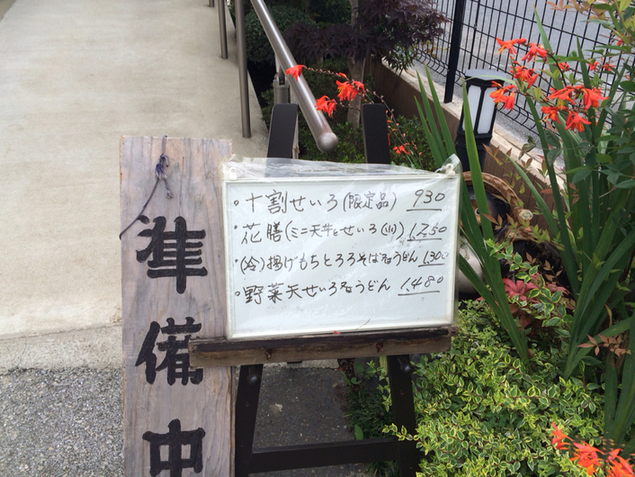 ・十割せいろ(限定品) 930
・花膳(ミニ天丼とせいろ(小)) 1,250
・(冷)揚げもちとろろそばorうどん 1,300
・野菜天せいろorうどん 1,480
準備中